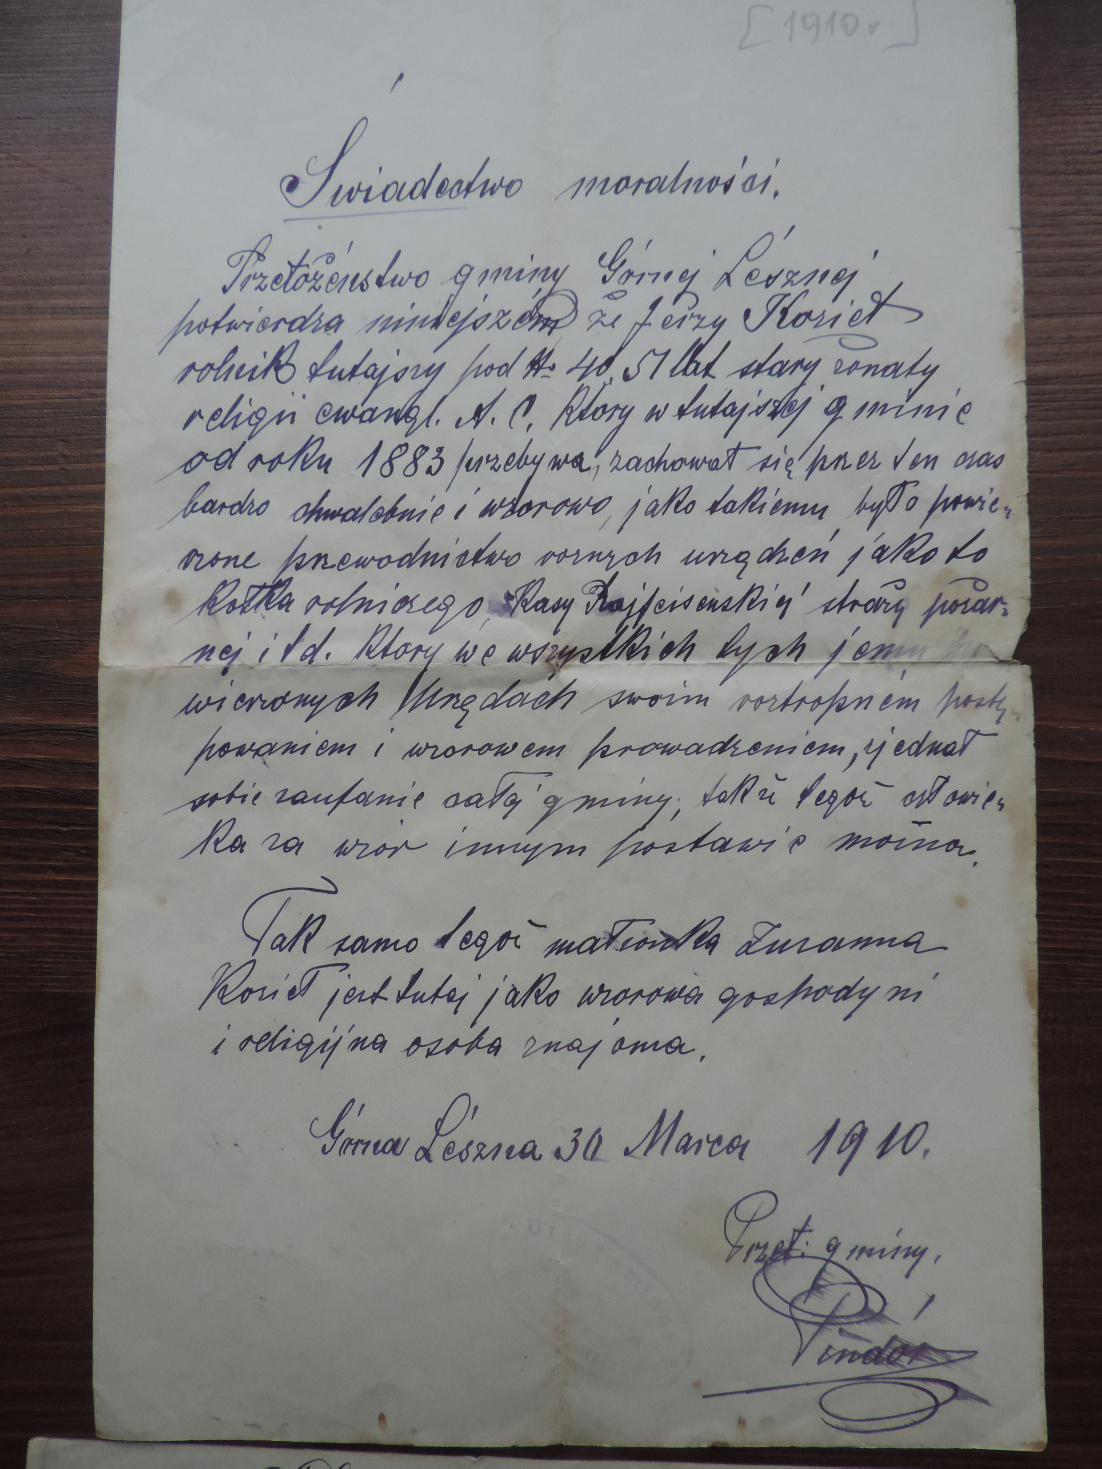 [1910 r.]
Świadectwo moralności.
Przełożéństwo gminy Górnej Lésznej
potwierdza niniejszém że Jerzy Kozieł
rolnik tutajszy pod No 40, 51 lat stary żonaty
religii ewangl. A. C. Który w tutajszej gminie
od roku 1883 przebywa, zachował się przez ten czas
bardzo chwalebnie i wzorowo, jako takiemu było powie-
rzone przewodnictwo roznych urządzeń jako to
Kołka rolniczego, Kasy Rajfeisenskiéj straży pożar-
néj i t d. Ktory we wszystkich tych jemu po
wierzonych Urzędach swoim roztropném postę-
powaniem i wzorowem prowadzeniem, zjednał
sobie zaufanie całéj gminy, także tegoż człowie-
ka za wzór innym postawić można.
Tak samo tegoż małżonka Zuzanna
Kozieł jest tutej jako wzorowa gospodyni
i religijna osoba znajoma.
Górna Lészna 30 Marca 1910.
Przeł: gminy.
Pindór